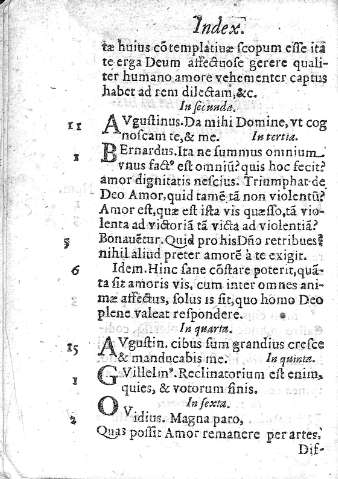 Index.
tæ huius cõtemplatiuæ scopum esse itá
te erga Deum affectuose gerere quali-
ter humano amore vehementer captus
habet ad rem dilectam, &c.
In secunda.
11 AVgustinus. Da mihi Domine, vt cog
noscam te, & me. In tertia.
1 BErnardus. Ita ne summus omnium
vnus fact⁹ est omniũ? quis hoc fecit?
amor dignitatis nescius. Triumphat de
Deo Amor, quid tamẽ tã non violentũ?
Amor est, quæ est ista vis quæsso, tã vio-
lenta ad victoriã tã victa ad violentiã?
5 Bonauẽtur. Quid pro his Dño retribues?
nihil aliud preter amorẽ à te exigit.
6 Idem. Hinc sane cõstare poterit, quã-
ta sit amoris vis, cum inter omnes ani-
mæ affectus, solus is sit, quo homo Deo
plene valeat respondere.
In quarta.
15 AVgustin. cibus sum grandius cresce
& manducabis me. In quinta.
1 GVillelin⁹. Reclinatorium est enim,
quies, & votorum finis.
In sexta.
2 OVidius. Magna paro,
Quas possit Amor remanere per artes,
Dif-